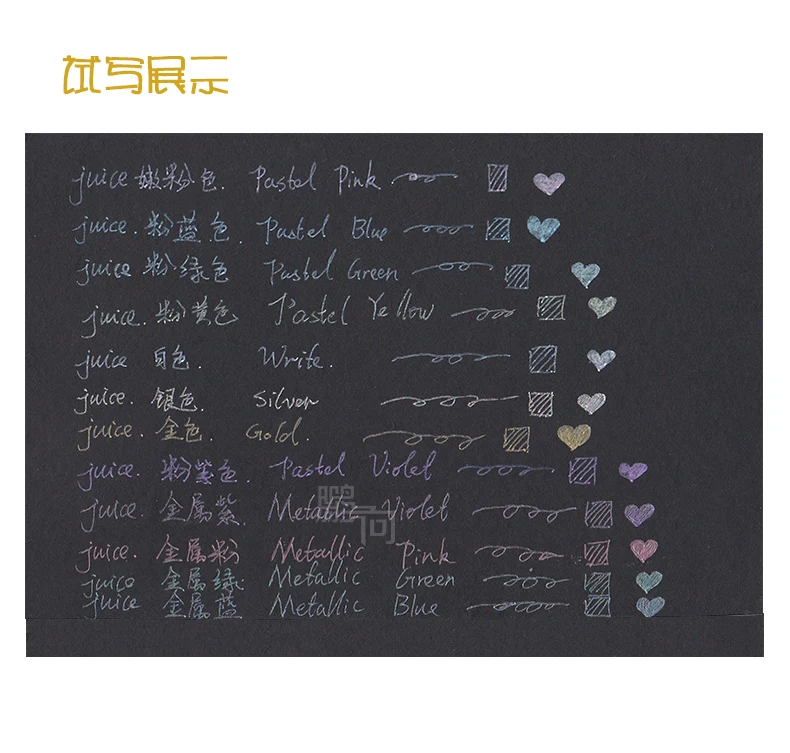 试写展示
juice 嫩粉色. Pastel Pink
juice. 粉蓝色. Pastel Blue
juice 粉绿色 Pastel Green
juice. 粉黄色 Pastel Yellow
juice 白色. Write.
juice. 银色. Silver
juice. 金色. Gold.
juice. 粉紫色. Pastel Violet
juice. 金属紫. Metallic Violet
juice. 金属粉 Metallic Pink
juice 金属绿. Metallic Green
juice. 金属蓝 Metallic Blue